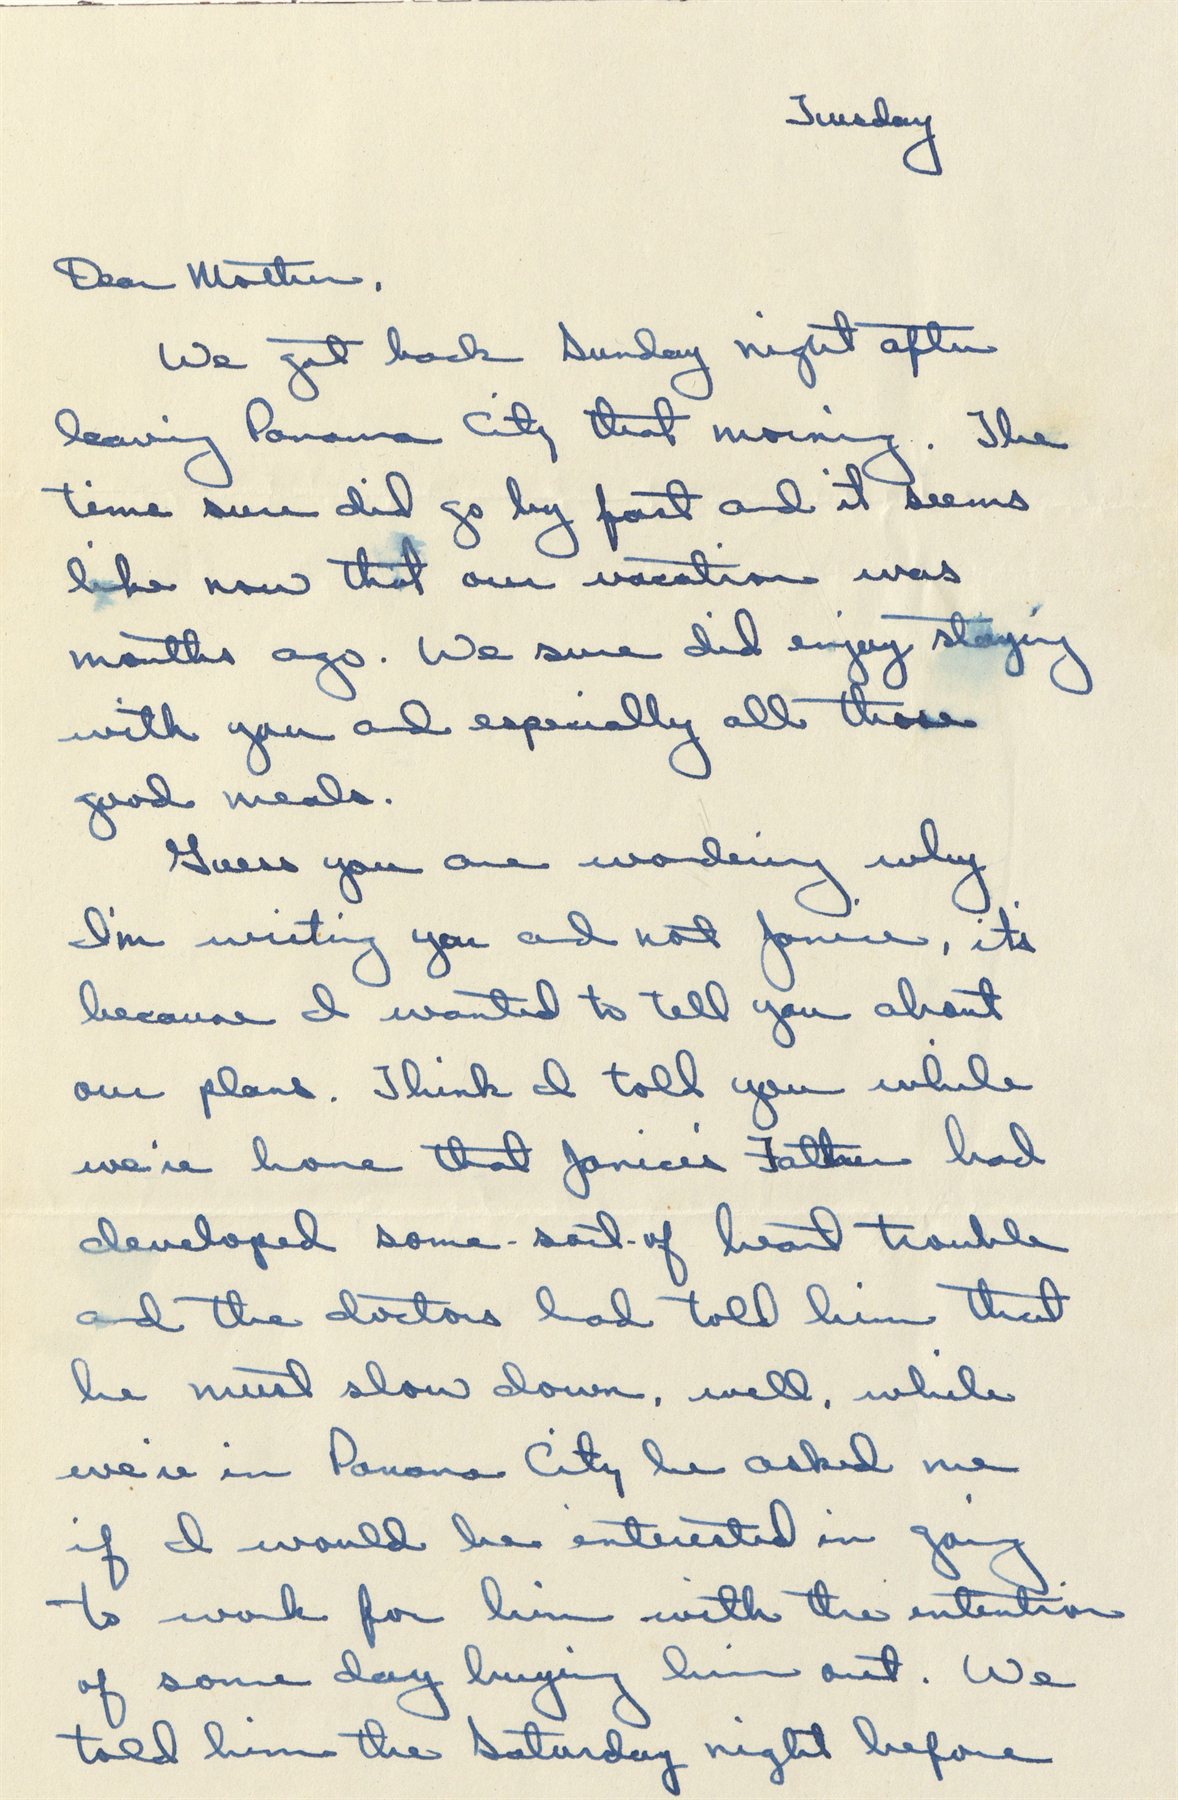 Tuesday
Dear Mother,
We got back Sunday night after
leaving Panama City that morning. The
time sure did go by fast and it seems
like now that our vacation was
months ago. We sure did enjoy staying
with you and especially all those
good meals.
Guess you are wondering why
I'm writing you and not Janice, it's
because I wanted to tell you about
our plans. Think I told you while
we're home that Janice's Father had
developed some-sort-of heart trouble
and the doctors had told him that
he must slow down, well, while
we're in Panama City he asked me
if I would be interested in going
to work for him with the intention
of some day buying him out. We
told him the Saturday night before